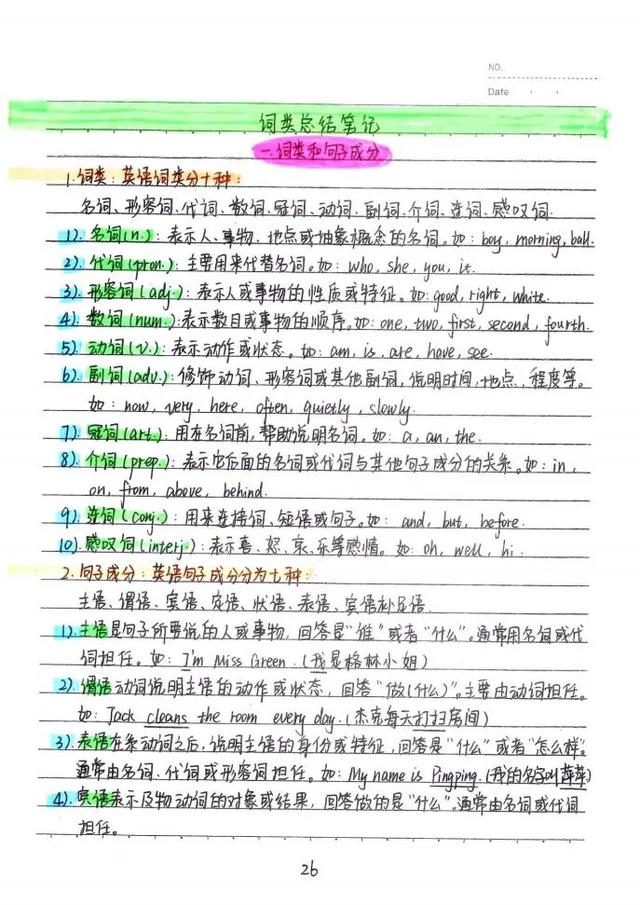 NO.
Date
词类总结笔记
一.词类和句子成分
1.词类:英语词类分十种:
名词、形容词、代词、数词、冠词、动词、副词、介词、连词、感叹词.
1).名词(n.):表示人、事物、地点或抽象概念的名词。如:boy, morning, ball.
2).代词(pron.):主要用来代替名词。如:who, she, you, it.
3).形容词(adj.):表示人或事物的性质或特征。如:good, right, white.
4).数词(num.):表示数目或事物的顺序。如:one, two, first, second, fourth.
5).动词(v.):表示动作或状态。如:am, is, are, have, see.
6).副词(adv.):修饰动词、形容词或其他副词,说明时间,地点、程度等。
如:now, very, here, often, quietly, slowly.
7).冠词(art.):用在名词前,帮助说明名词。如:a, an, the.
8).介词(prep.):表示它后面的名词或代词与其他句子成分的关系。如:in,
on, from, above, behind.
9).连词(conj.):用来连接词、短语或句子。如: and, but, before.
10).感叹词(interj.):表示喜、怒、哀、乐等感情。如:oh, well, hi.
2.句子成分:英语句子成分分为七种:
主语、谓语、宾语、定语、状语、表语、宾语补足语.
1).主语是句子所要说的人或事物,回答是“谁”或者“什么”。通常用名词或代
词担任。如:I'm Miss Green.(我是格林小姐)
2).谓语动词说明主语的动作或状态,回答“做(什么)”。主要由动词担任。
如:Jack cleans the room every day.(杰克每天打扫房间)
3).表语在系动词之后,说明主语的身份或特征,回答是“什么”或者“怎么样”。
通常由名词、代词或形容词担任。如:My name is Pingping.(我的名字叫萍萍)
4).宾语表示及物动词的对象或结果,回答做的是“什么”。通常由名词或代词
担任。
26